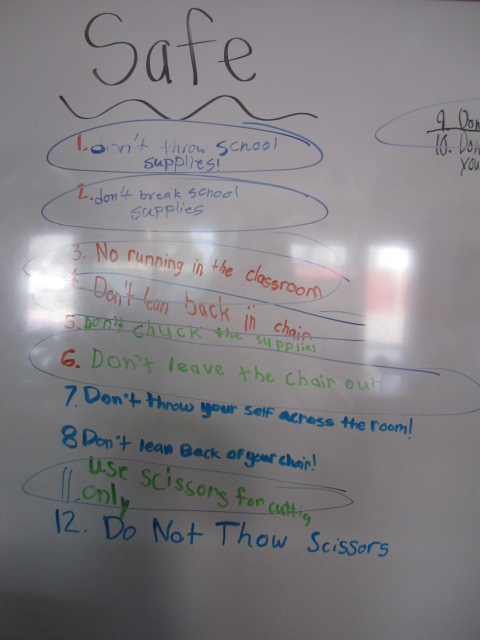 Safe
1. don't throw school
supplies!
2. don't break school
supplies
3. No running in the classroom
4. Don't lean back in chair
5. Don't chuck the supplies
6. Don't leave the chair out
7. Don't throw your self across the room!
8 Don't lean Back of your chair!
11. use scissors for cuttig
only
12. Do Not Thow Scissors
9. Don
10. Don
you